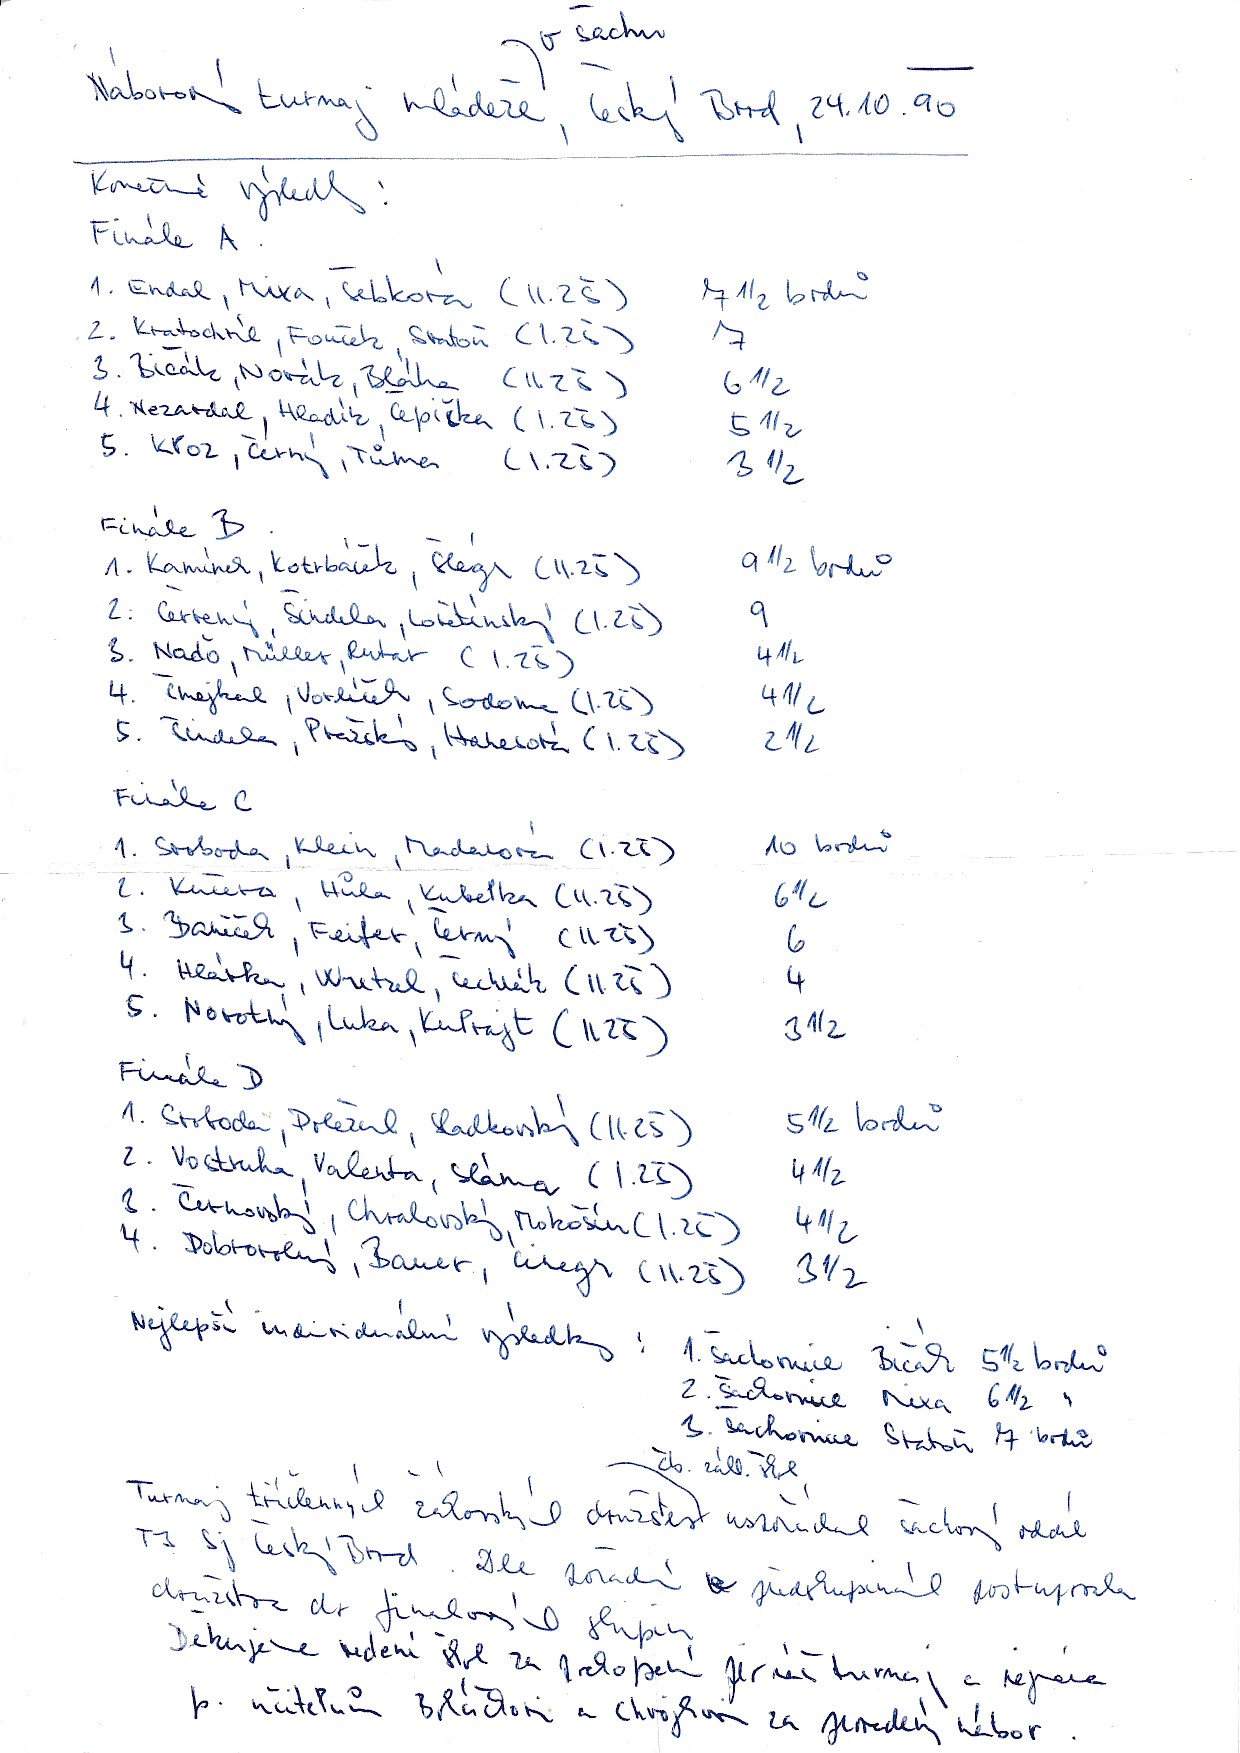 v šachu
Náborový turnaj mládeže, Český Brod, 24.10.90
Konečné výsledky:
Finále A.
1. Endal, Mixa, Šebková (II.ZŠ) 7 1/2 bodů
2. Kratochvíl, Fouček, Statoň (I.ZŠ) 7
3. Bičák, Novák, Bláha (II.ZŠ) 6 1/2
4. Nezavdal, Hladík, Čepička (I.ZŠ) 5 1/2
5. Kroz, Černý, Tůma (I.ZŠ) 3 1/2
Finále B.
1. Kamínek, Kotrbáček, Šlégr (II.ZŠ) 9 1/2 bodů
2. Červený, Šindela, (I.ZŠ) 9
3. Nadò, Müller, Rutar (I.ZŠ) 4 1/2
4. Čmejkal, Vorlíček, Sodoma (I.ZŠ) 4 1/2
5. Šindela, Pražský, (I.ZŠ) 2 1/2
Finále C
1. Svoboda, Klein, (I.ZŠ) 10 bodů
2. Kučera, Hůla, Kubelka (II.ZŠ) 6 1/2
3. Feifer, Černý (II.ZŠ) 6
4. Hlávka, Wretzl, (II.ZŠ) 4
5. Novotný, Luka, Kuprajt (II.ZŠ) 3 1/2
Finále D
1. Svoboda, Doležal, Sladkovský (II.ZŠ) 5 1/2 bodů
2. Vostruha, Valenta, Sláma (I.ZŠ) 4 1/2
3. Černovský, Chvalovský, Mokošín (I.ZŠ) 4 1/2
4. Dobrovolný, Bauer, (II.ZŠ) 3 1/2
Nejlepší individuální výsledky: 1. šachovnice Bičák 5 1/2 bodů
2. šachovnice Mixa 6 1/2 "
3. šachovnice Statoň 7 bodů
čb. zákl. škol
Turnaj tříčlenných žákovských družstev uspořádal šachový oddíl
TJ Sj Český Brod. Dle pořadí ve předskupinách postupovala
družstva do finálových skupin.
Děkujeme vedení škol za pochopení pro náš turnaj a zejména
p. učitelům a za provedený nábor.